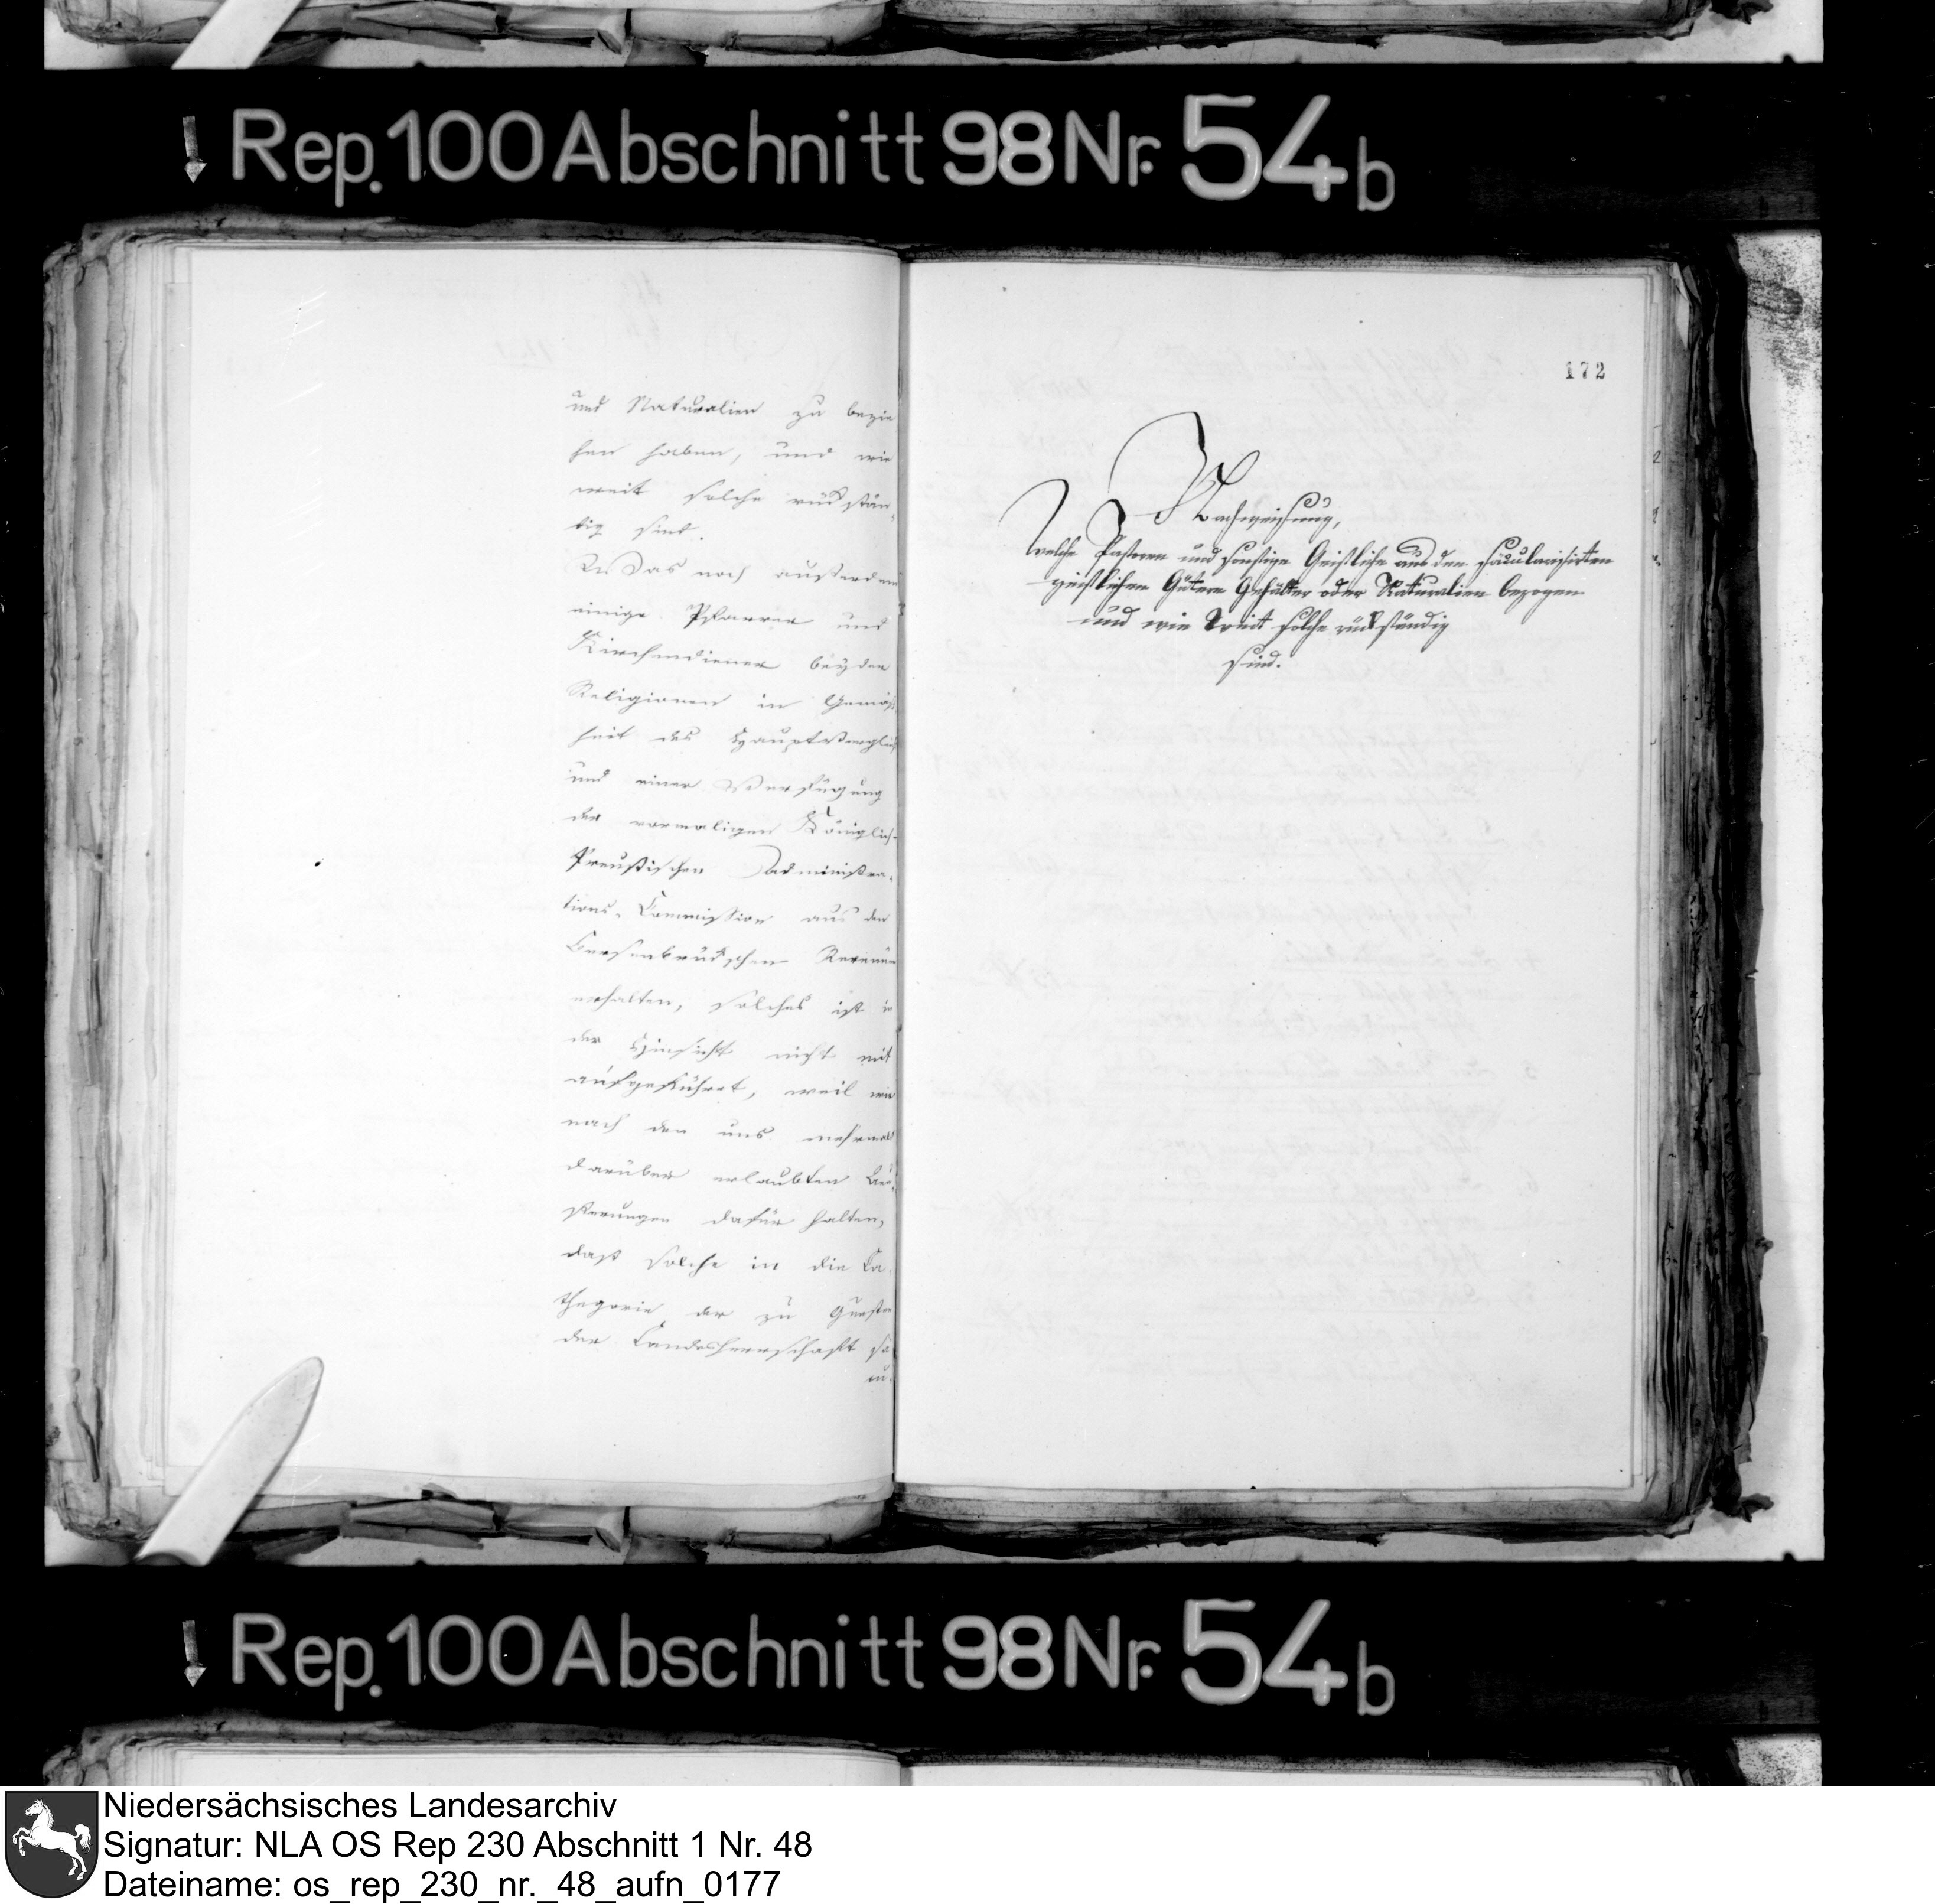 Rep. 100 Abschnitt 98 Nr. 54b
und Naturalien zu bezie
hen haben, und wie
weit solche rückstän-
dig sind.
Das noch außerdem
einige Pfarrer und
Kirchendiener beyder
Religionen in Gemäß
heit des Hauptvergleichs
und einer Verfügung
der vormaligen Königlich-
Preußischen Administra-
tions-Commission aus den
Bersenbrückschen Revenüen
erhalten, solches ist in
der Hinsicht nicht mit
aufgeführt, weil wir
nach den uns mehrmals
darüber erlaubten Aeu-
ßerungen dafür halten,
daß solche in die Ca
thegorie der zu Gunsten
der Landesherrschaft
172
Nachweisung,
welche Pastoren und sonstige Geistliche aus den säcularisirten
geistlichen Gütern Gehälter oder Naturalien bezogen
und wie weit solche rückständig
sind.
Rep. 100 Abschnitt 98 Nr. 54b
Niedersächsisches Landesarchiv
Signatur: NLA OS Rep 230 Abschnitt 1 Nr. 48
Dateiname: os_rep_230_nr._48_aufn_0177